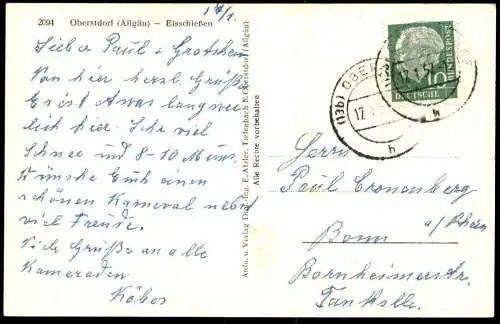 2094 Oberstdorf (Allgäu) – Eisschießen
17/1.
Lieber Paul u. Gretchen
Von hier herzl. Grüße
Es ist etwas langwei
lich hier. Sehr viel
Schnee und 8-10 Minus.
Wünsche Euch einen
schönen Karneval nebst
viel Freude.
Viele Grüße an alle
Kameraden
Köbes
Aufn. u. Verlag Dipl.-Ing. E. Atzler, Tiefenbach b. Oberstdorf (Allgäu)
Alle Rechte vorbehalten
DEUTSCHE BUNDESPOST
10
(13b) OBER
17.1.
h
17.1.5
h
Herrn
Paul Cronenberg
Bonn
a/Rhein
Bornheimerstr.
Tankstelle.